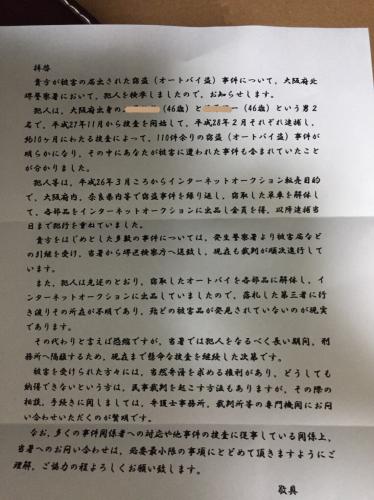 拝啓
貴方が被害の届出された窃盗(オートバイ盗)事件について、大阪府北
堺警察署において、犯人を検挙しましたので、お知らせします。
犯人は、大阪府出身の (46歳)と 一(46歳)という男2
名で、平成27年11月から捜査を開始して、平成28年2月それぞれ逮捕し、
約10ケ月にわたる捜査によって、110件余りの窃盗(オートバイ盗)事件が
明らかになり、その中にあなたが被害に遭われた事件も含まれていたこと
が分かりました。
犯人等は、平成26年3月ころからインターネットオークション転売目的
で、大阪府内、奈良県内等で窃盗事件を繰り返し、窃取した単車を解体し
て、各部品をインターネットオークションに出品し金員を得、以降逮捕当
日まで犯行を重ねていました。
貴方をはじめとした多数の事件については、発生警察署より被害届など
の引継を受け、当署から堺区検察庁へ送致し、現在も裁判が順次進行して
います。
また、犯人は先述のとおり、窃取したオートバイを各部品に解体し、イ
ンターネットオークションに出品していましたので、落札した第三者に行
き渡りその所在が不明であり、殆どの被害品が発見されていないのが現実
であります。
その代わりと言えば恐縮ですが、当署では犯人をなるべく長い期間、刑
務所へ隔離するため、現在まで懸命な捜査を継続した次第です。
被害を受けられた方々には、当然弁償を求める権利があり、どうしても
納得できないという方は、民事裁判を起こす方法もありますが、その際の
相談、手続きに関しましては、弁護士事務所、裁判所等の専門機関にお問
い合わせいただくのが賢明です。
なお、多くの事件関係者への対応や他事件の捜査に従事している関係上、
当署へのお問い合わせは、必要最小限の事項にとどめて頂きますようにご
理解、ご協力の程よろしくお願い致します。
敬具